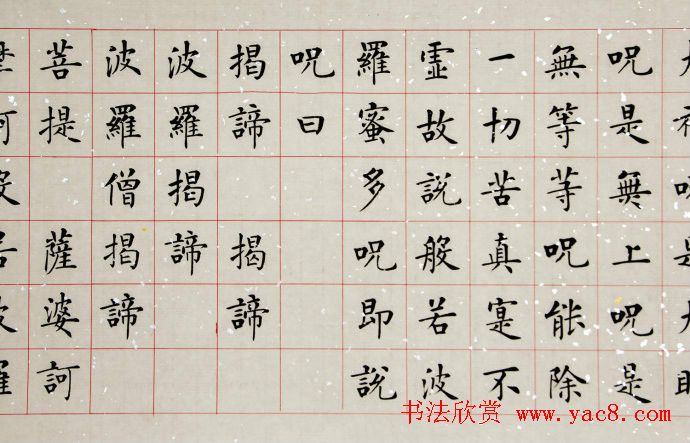 呪是無上呪是
無等等呪能除
一切苦真寔不
虛故說般若波
羅蜜多呪即說
呪曰
揭諦 揭諦
波羅揭諦
波羅僧揭諦
菩提 薩婆訶
书法欣赏 www.yac8.com